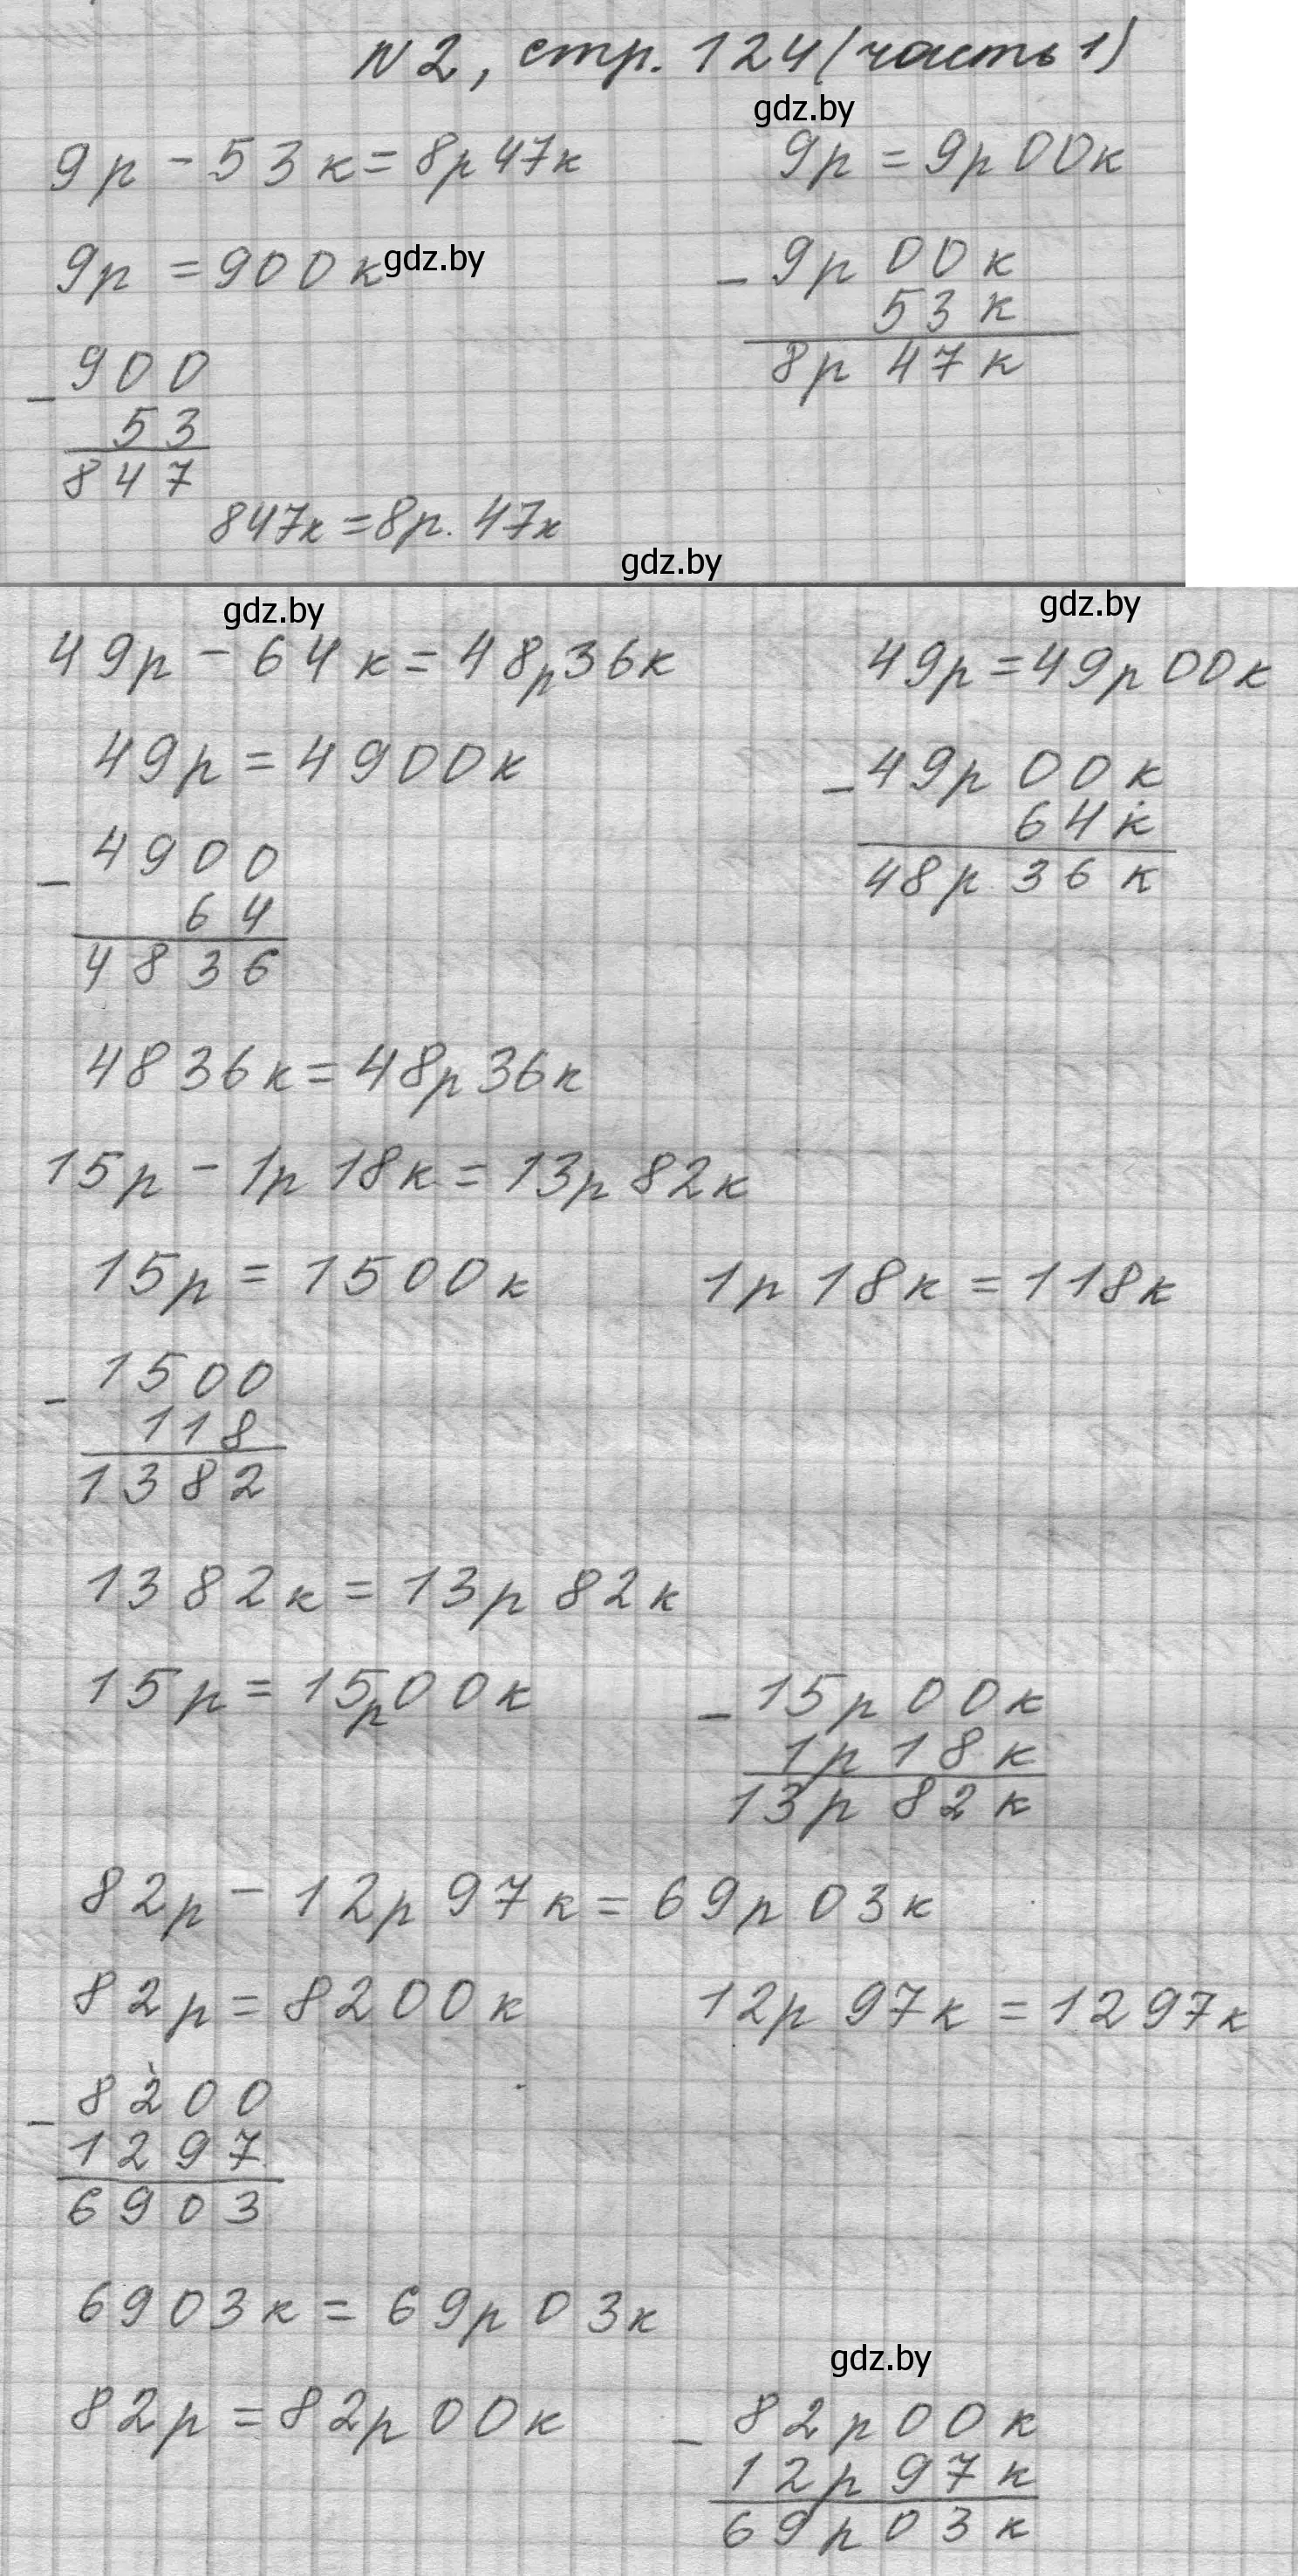 N2, стр. 124 (часть 1)
gdz.by
9р - 53к = 8р 47к
9р = 9р 00к
9р = 900к
gdz.by
- 9р 00к
53к
8р 47к
- 900
53
847
847к = 8р. 47к
gdz.by
gdz.by
gdz.by
49р - 64к = 48р 36к
49р = 49р 00к
49р = 4900к
- 49р 00к
64к
48р 36к
- 4900
64
4836
4836к = 48р 36к
15р - 1р 18к = 13р 82к
15р = 1500к
1р 18к = 118к
- 1500
118
1382
1382к = 13р 82к
15р = 15р 00к
- 15р 00к
1р 18к
13р 82к
82р - 12р 97к = 69р 03к
82р = 8200к
12р 97к = 1297к
- 8200
1297
6903
6903к = 69р 03к
gdz.by
82р = 82р 00к
- 82р 00к
12р 97к
69р 03к